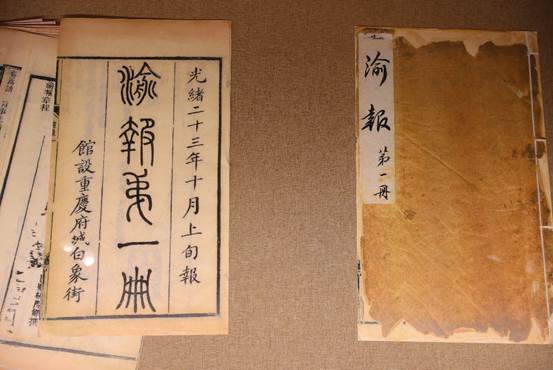 光緒二十三年十月上旬報
渝報第一冊
館設重慶府城白象街
渝報
第一冊